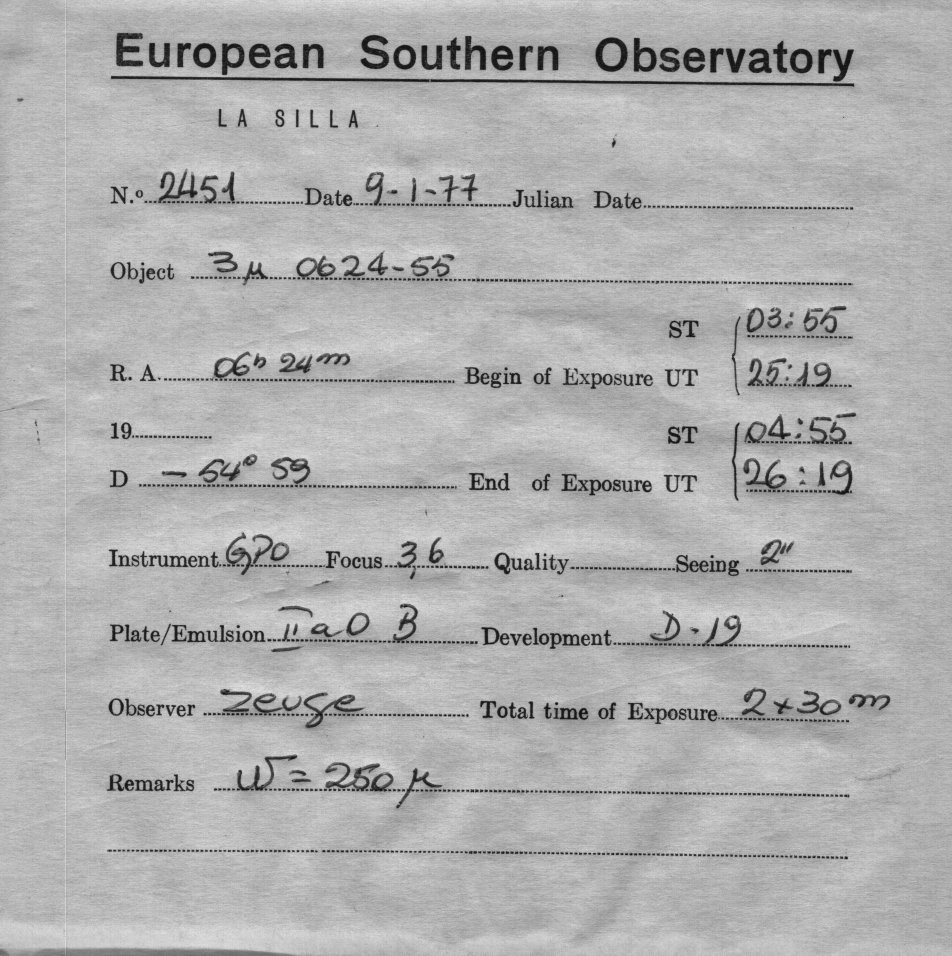 European Southern Observatory
LA SILLA
N.º 2451 Date 9-1-77 Julian Date
Object 3μ 0624-55
ST 03:55
R. A. 06h 24m Begin of Exposure UT 25:19
19 ST 04:55
D -54° 59 End of Exposure UT 26:19
Instrument GPO Focus 3,6 Quality Seeing 2"
Plate/Emulsion IIaO B Development D-19
Observer Zeuge Total time of Exposure 2×30m
Remarks W = 250 μ